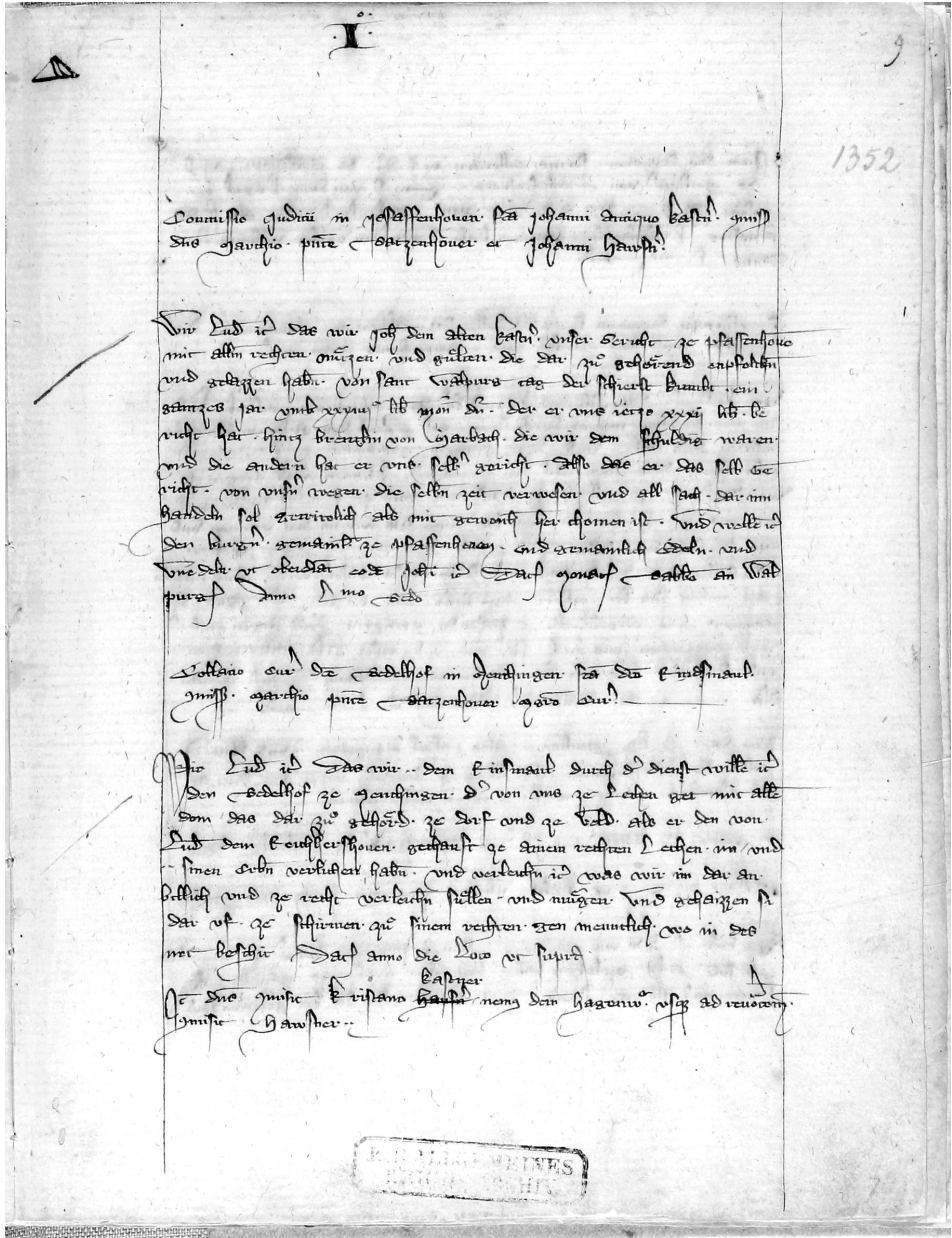 I
9
1352
Commissio Judicii in Pfaffenhouen fca̅ Johanni antiquo kastn̅.
dn̅s Marchio. pn̅te Satzenhouer et Johanni hawsn̅.
Wir Lud̅ ic̅ das wir Joh̅ dem alten kastn̅. vnser Gericht ze pfaffenhoue̅
mit alln̅ rechten. nützen. vnd gülten. die dar zuͦ gehoͤrend enpfolhn̅
vnd gelazzen habn̅. von sant walpurg tag der schierst kumbt. ein
gantzes Jar vmb xxxiiii lib̅ mon̅ dn̅. der er vns ietzo xxxii lib̅. be
richt hat. hintz von Marbach. die wir dem schuldig waren.
vnd die andern hat er vns. selb̅ gericht. Also das er. das selb Ge
richt. von vnsn̅ wegen. die selbn̅ zeit verwesen. vnd all sach. dar inn
handeln sol getriwlich als mit gewonh̅ her chomen ist. vnd welle̅ ic̅
den burgn̅. gemainl̅ ze pfaffenhouen. vnd gemainlich Edeln. vnd
vnedeln. vt obediat̅ eode̅ Joh̅i ic̅ Dat̅ Monac̅ Sabb̅o an̅ Wal
purg̅ Anno L mo s̅c̅do
Collatio Cur̅ dc̅e Sedelhof in Menchingen fca̅ dc̅o Rindsmaul.
Marchio pn̅te Satzenhouer Mgr̅o Cur̅.
Wir Lud̅ ic̅ Das wir.. dem Rinsmaul durch d̅ dienst wille̅ ic̅
den Sedelhof ze Menchingen. d̅ von vns ze Lehen get mit alle̅
dem das dar zuͦ gehoͤrd. ze dorf vnd ze veld. als er den von.
Lud̅ dem Reichkershouen. gechauft ze ainem rechten Lechen. im. vnd
.. sinen Erbn̅ verlichen habn̅. vnd verleichn̅ ic̅ was wir im dar an.
billich vnd ze recht verleichn̅ süllen. vnd mügen. Vnd gehaizzen si
dar vf. ze schirmen. zuͦ sinem rechten. gen meniclich. wo in des
not beschit Dat̅ anno die Loco vt supra
kastner
It̅ dn̅s misit kristano nemus dem hagenno̅. vsqz ad reuoc̅om̅.
misit hawsner..